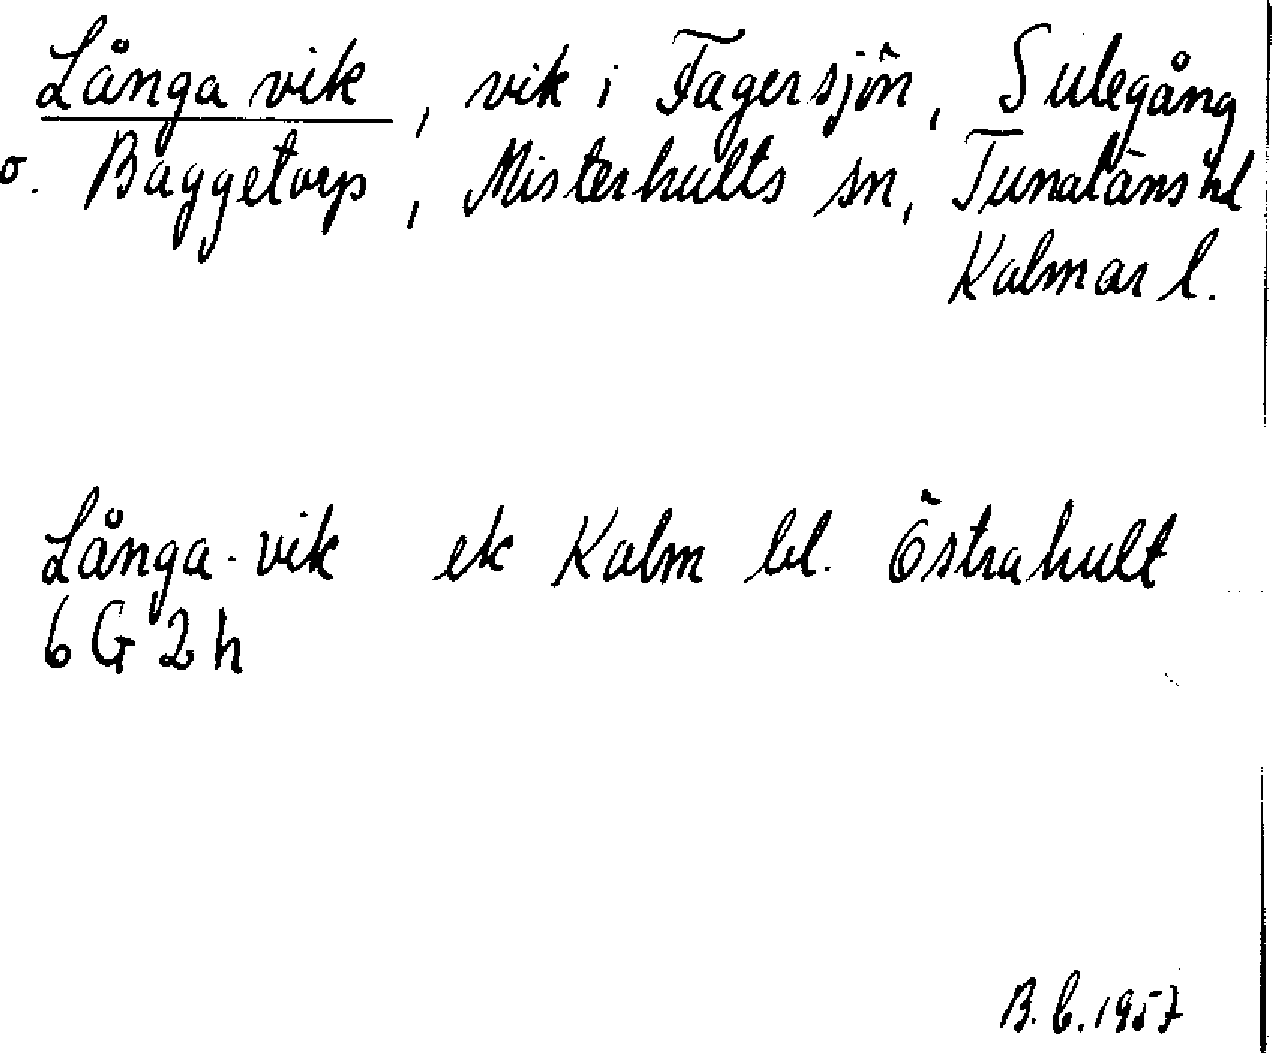 Långa vik, vik i Fagersjön, Sulegång
o. Baggetorp, Misterhults sn, Tunaläns hd
Kalmar l.
Långa-vik ek Kalm bl. Östrahult
6 G 2 h
B.C. 1957